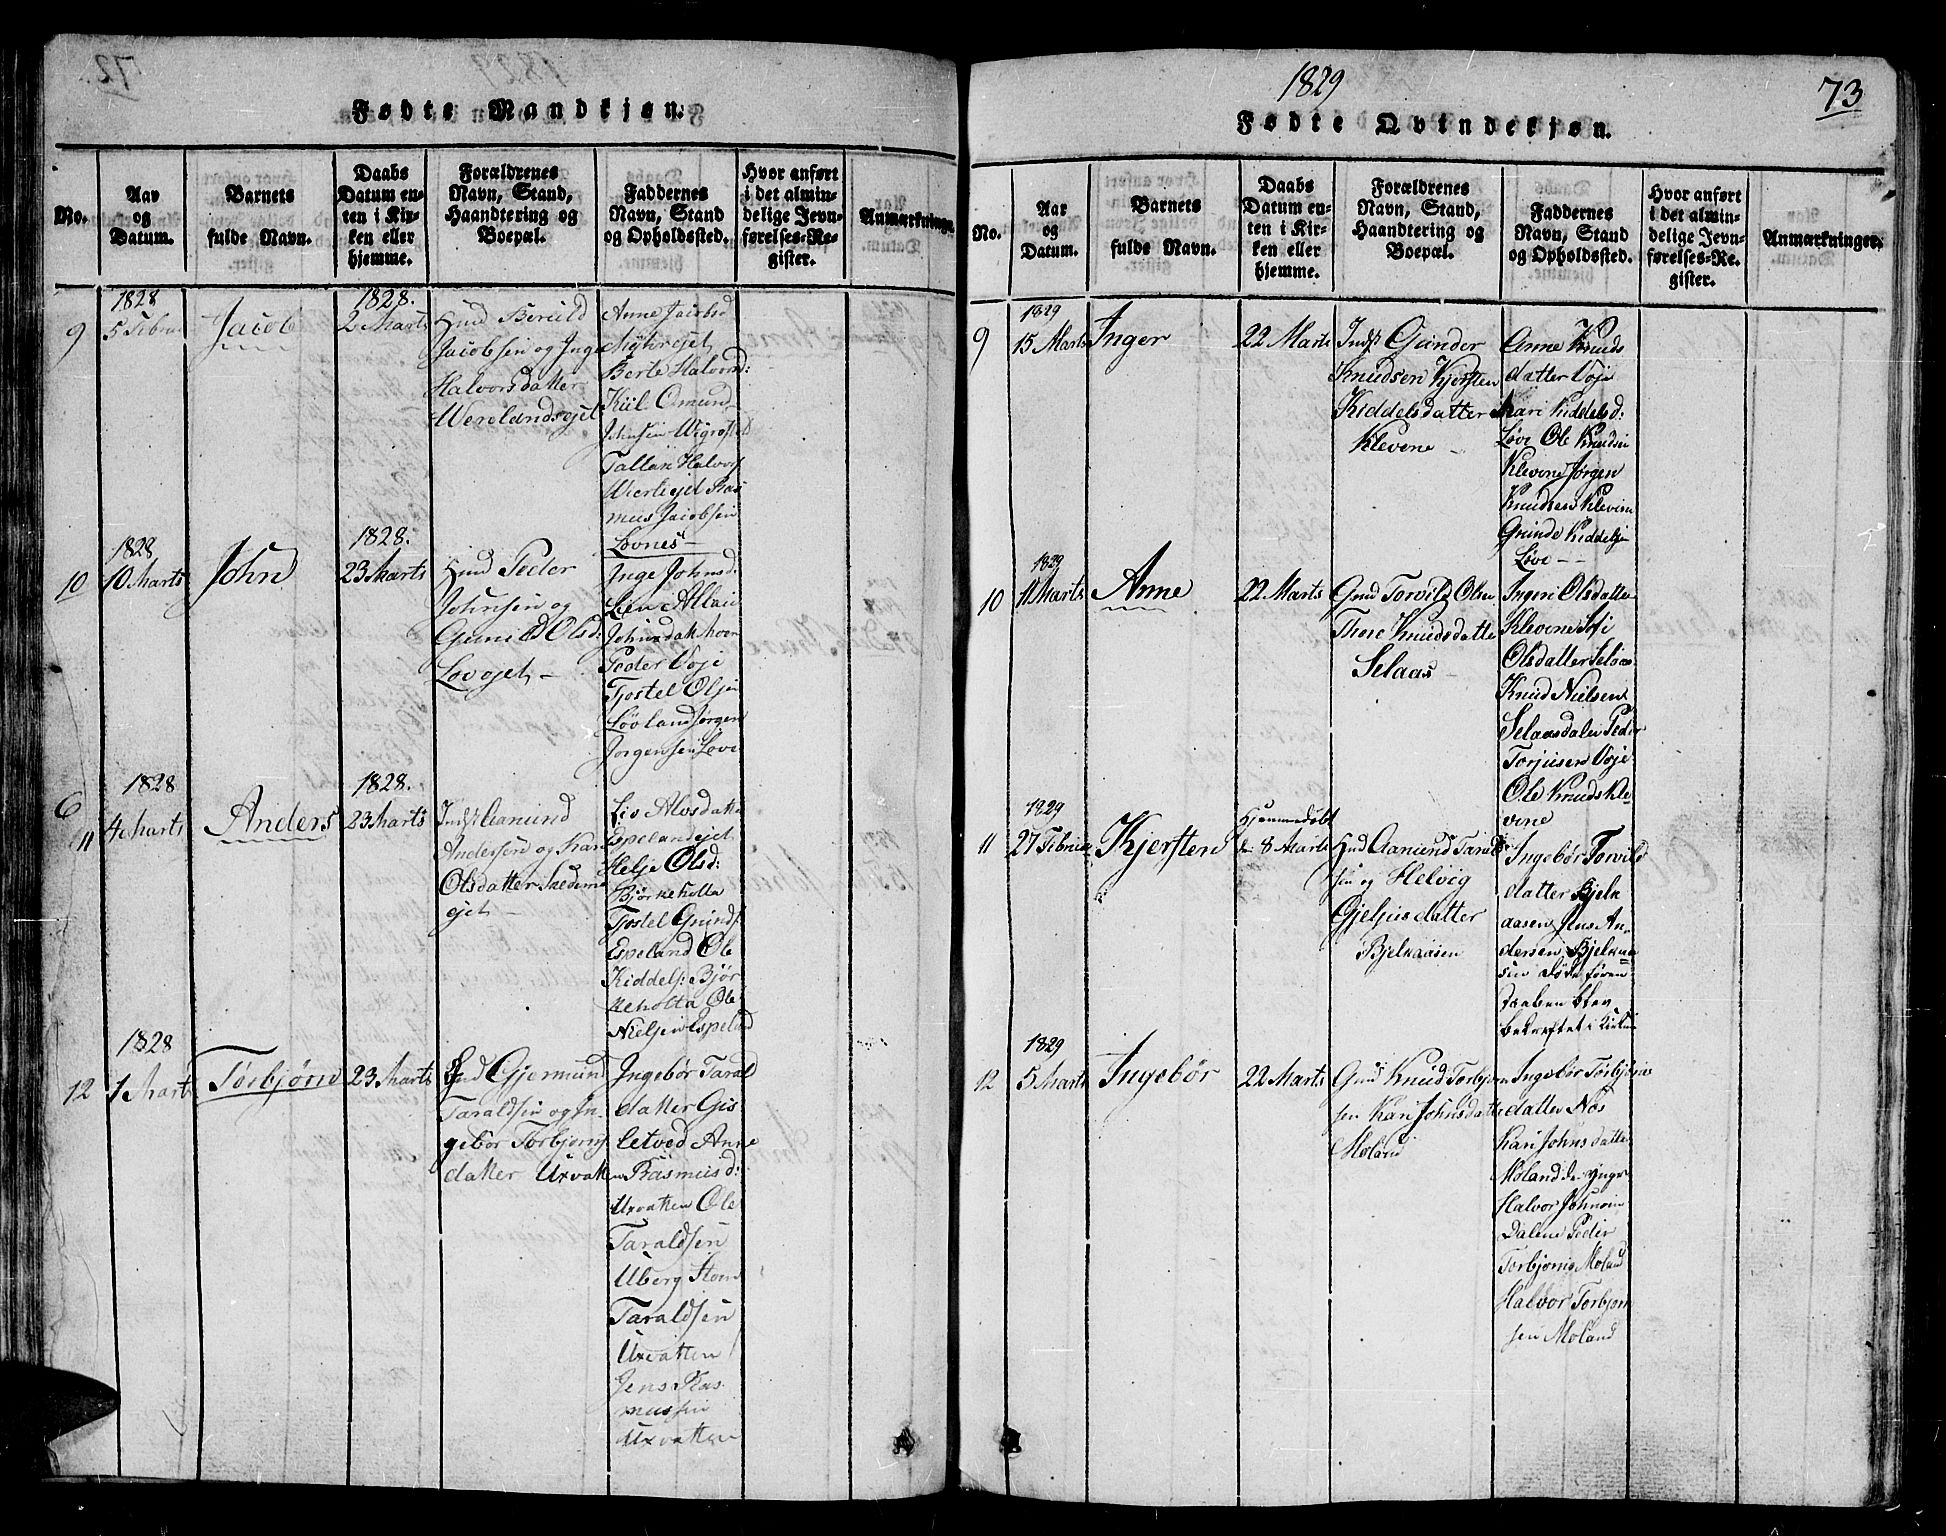 Fødte Mandkjøn.
No.
Aar
og
Datum.
Barnets
fulde Navn.
Daabs
Datum en-
ten i Kir-
ken eller
hjemme.
Forældrenes
Navn, Stand,
Haandtering og
Boepæl.
Faddernes
Navn, Stand
og Opholdssted.
Hvor anført
i det almin-
delige Jevn-
førelses-Re-
gister.
Anmærkninger.
9
1828
5 Febru
Jacob
1828.
2 Marts
Beruld
Jacobsen og Inge
Halvorsdatter
Werelandsejet
Anne Jacobsd
Myhrejet
Berte Halvorsd:
Kiil Omund
Johnsen Wigrested
Tallak Halvors
Wierliejet Ras
mus Jacobsen
Lovnes
10
1828
10 Marts
John
1828.
23 Marts
Peder
Johnsen og
Gunild Olsd:
Lovejet
Inge Johnsd:
Lien
Johnsdatt
Peder Voje
Tjostel Olsen
Løvland Jørgen
Jørgensen Love
6
11
1828
4 Marts
Anders
1828.
23 Marts
Indst Aamund
Andersen og Kari
Olsdatter
ejet
Liv Alvsdatter
Espelandejet
Helje Olsd:
Bjørkeholta
Tjostel Gunds
Espeland Ole
Kiddels: Bjør
keholta Ole
Nielsen Espeland
12
1828
1 Marts
Torbjørn
23 Marts
Gmd Gjermund
Taraldsen og In-
gebor Torbjørns
datter Uxvatten
Ingebør Tarald
datter Gis
letvod Anne
Rasmusd:
Uxvatten Ole
Taraldsen
Uberg
Taraldsen
Uxvatten
Jens Ras
mussen
Uxvatten
1829
73
Fødte Qvindekjøn.
No.
Aar
og
Datum.
Barnets
fulde Navn.
Daabs
Datum en-
ten i Kir-
ken eller
hjemme.
Forældrenes
Navn, Stand,
Haandtering og
Boepæl.
Faddernes
Navn, Stand
og Opholdssted.
Hvor anført
i det almin-
delige Jevn-
førelses-Re-
gister.
Anmærkninger.
9
1829
15 Marts
Inger
22 Marts
Indst Gunder
Knudsen Kjersten
Kiddelsdatter
Klevene
Anne Knuds
datter Voje
Mari Kiddelsd:
Løve Ole Knudsen
Klevene Jørgen
Knudsen Klevene
Gunde Kiddelsen
Løve
10
1829
11 Marts
Anne
22 Marts
Gmd Torvild Olsen
Thore Knudsdatter
Selaas
Ingeri Olsdatter
Klevene Sofi
Olsdatter Seløas
Knud Nielsen
Selaasdalen Peder
Torjusen Voje
Ole Knuds Kle-
vene
11
1829
27 Februar
Kjersten
Hjemmedøbt
8 Marts
Aamund Tarald
sen og Helvig
Gjeljusdatter
Bjelkaasen
Ingebør Torvild
datter Bjelk
aasen Jens An-
dersen Bjelkaa-
sen døde føren
Daaben blev
bekræftet i Kirken
12
1829
5 Marts
Ingebør
22 Marts
Gmd Knud Torbjørn
sen Kari Johnsdatter
Moland
Ingebør Torbjørns
datter Næs
Kari Johnsdatter
Moland de yngre
Halvor Johnsen
Dalene Peder
Torbjørns Moland
Halvor Torbjørn
sen Moland